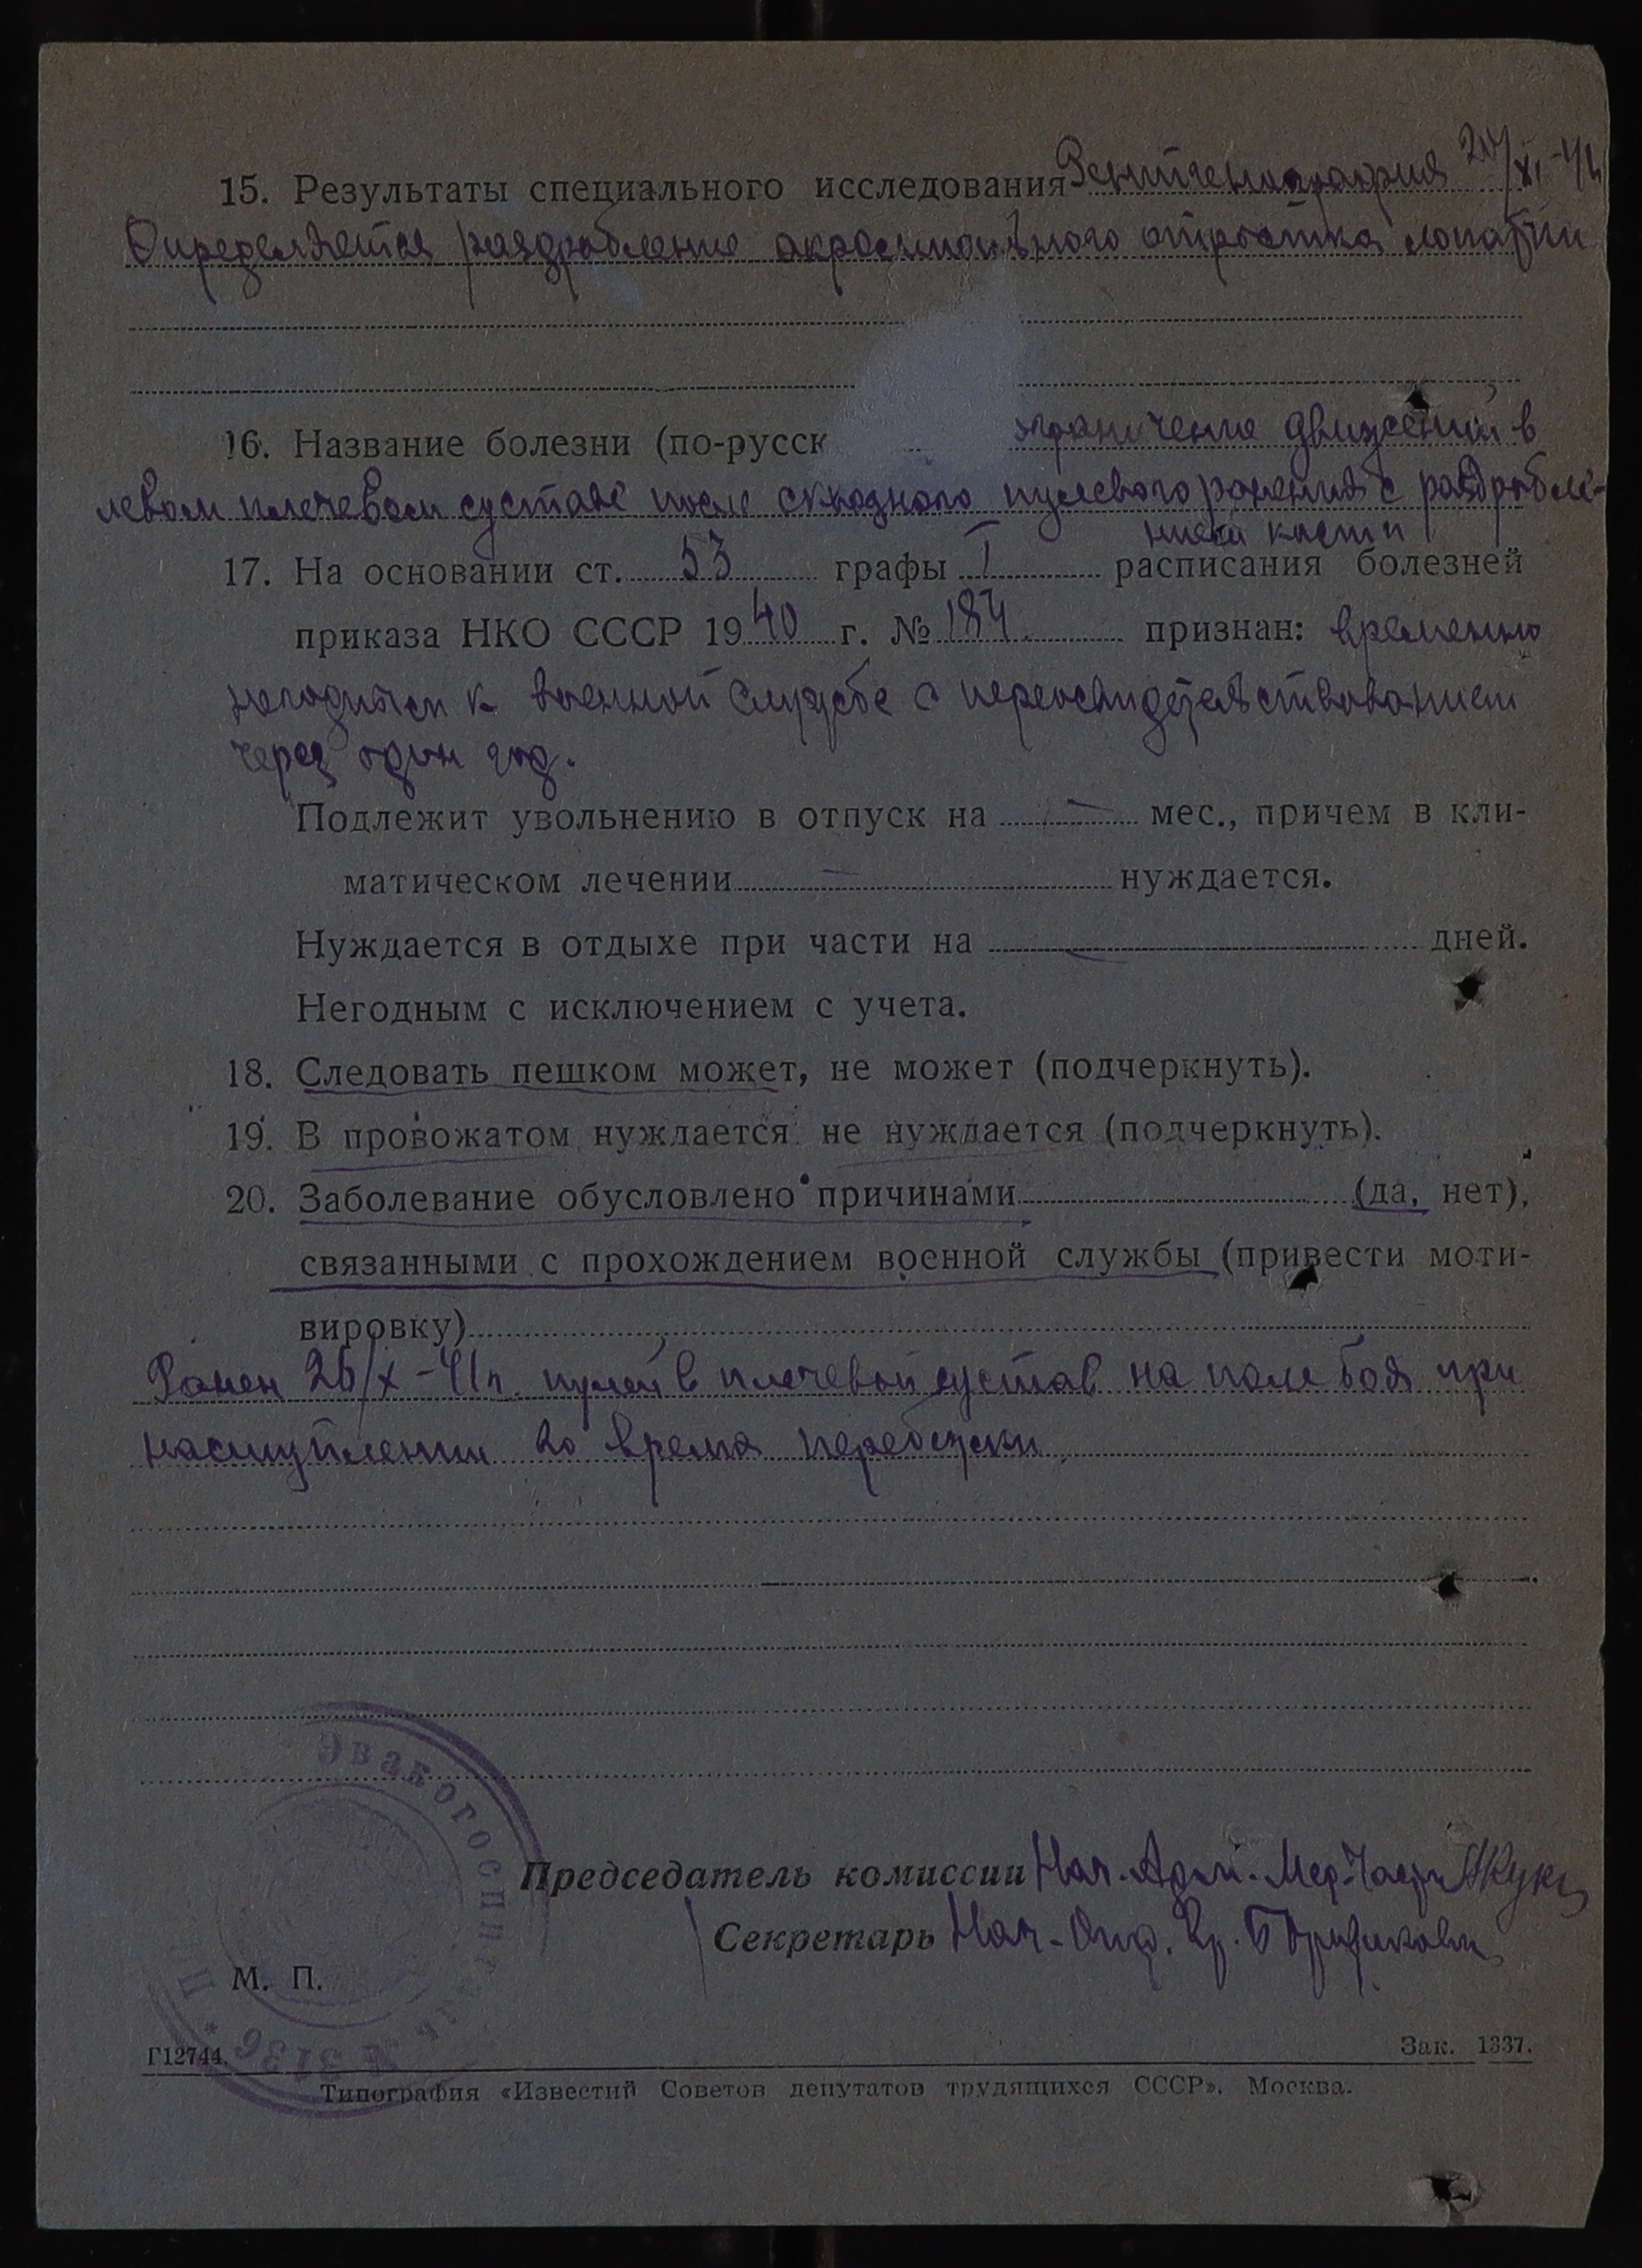 15. Результаты специального исследования Рентгенография
Определяется раздробление акромиального отростка лопатки
16. Название болезни (по-русск ограничение движений в
левом плечевом суставе после сквозного пулевого ранения с раздробле-
нием кости
17. На основании ст. 53 графы I расписания болезней
приказа НКО СССР 1940 г. № 184 признан: временно
негодным к военной службе с переосвидетельствованием
через один год.
Подлежит увольнению в отпуск на — мес., причем в кли-
матическом лечении — нуждается.
Нуждается в отдыхе при части на — дней.
Негодным с исключением с учета.
18. Следовать пешком может, не может (подчеркнуть).
19. В провожатом нуждается не нуждается (подчеркнуть).
20. Заболевание обусловлено причинами (да, нет),
связанными с прохождением военной службы (привести моти-
вировку)
Ранен 26/X-41г. пулей в плечевой сустав на поле боя при
наступлении во время перебежки
Эвакогоспиталь № 3136 *
Председатель комиссии Нач. Адм. Мед. Части
Секретарь Нач. Отд. Вр.
М. П.
Г12744. Зак. 1337.
Типография «Известий Советов депутатов трудящихся СССР». Москва.